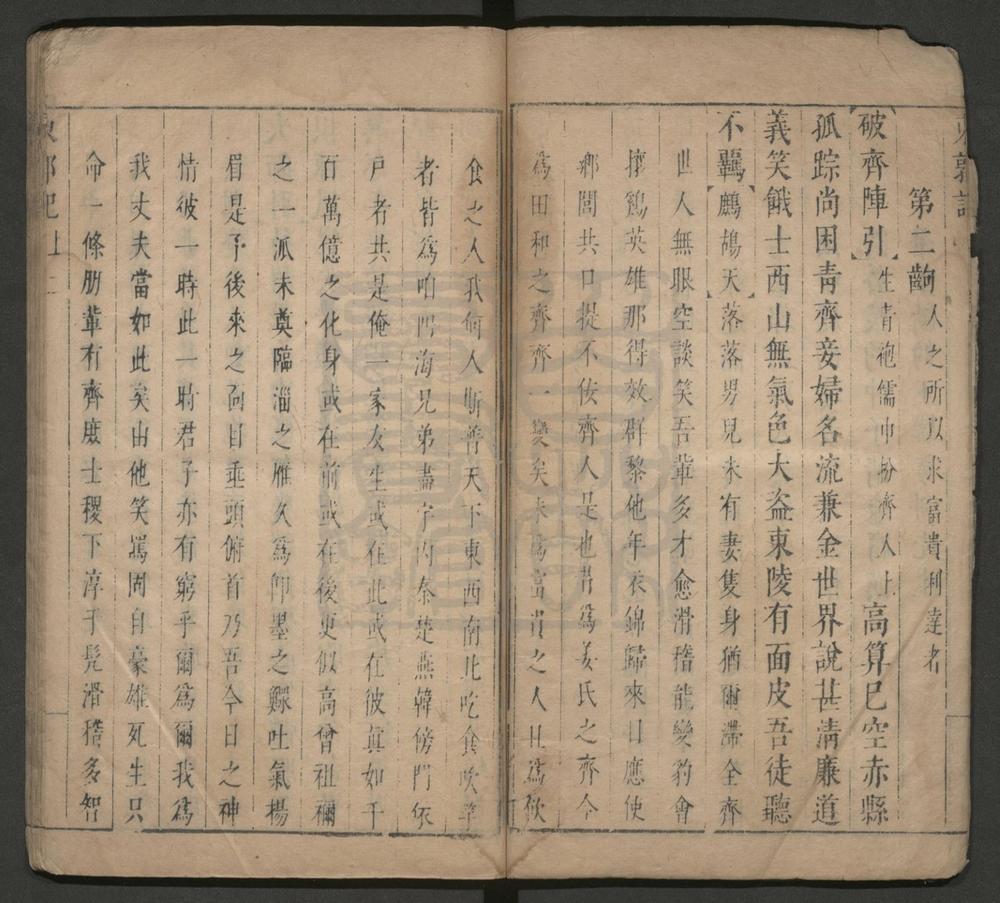 東郭記
第二齣 人之所以求富貴利達者
【破齊陣引】生青袍儒巾扮齊人上 高算已空赤縣
孤踪尚困青齊妾婦名流兼金世界說甚清廉道
義笑餓士西山無氣色大盜東陵有面皮吾徒聽
不羈【鷓鴣天】落落男兒未有妻隻身猶爾滯全齊
世人無眼空談笑吾輩多才愈滑稽能變豹會
攘鷄英雄那得效群黎他年衣錦歸來日應使
鄉閭共口提不佞齊人是也昔爲姜氏之齊今
爲田和之齊齊一變矣未爲富貴之人且爲飲
食之人我何人斯普天下東西南北吃食吹竽
者皆爲咱們海兄弟盡宇內秦楚燕韓傍門依
戶者共是俺一家友生或在此或在彼真如千
百萬億之化身或在前或在後更似高曾祖禰
之一派未奠臨淄之雁久爲卽墨之鰥吐氣揚
眉是予後來之面目垂頭俯首乃吾今日之神
情彼一時此一時君子亦有窮乎爾爲爾我爲
我丈夫當如此矣由他笑罵固自豪雄死生只
命一條朋輩有齊庶士稷下淳于髠滑稽多智
東郭記 上 二